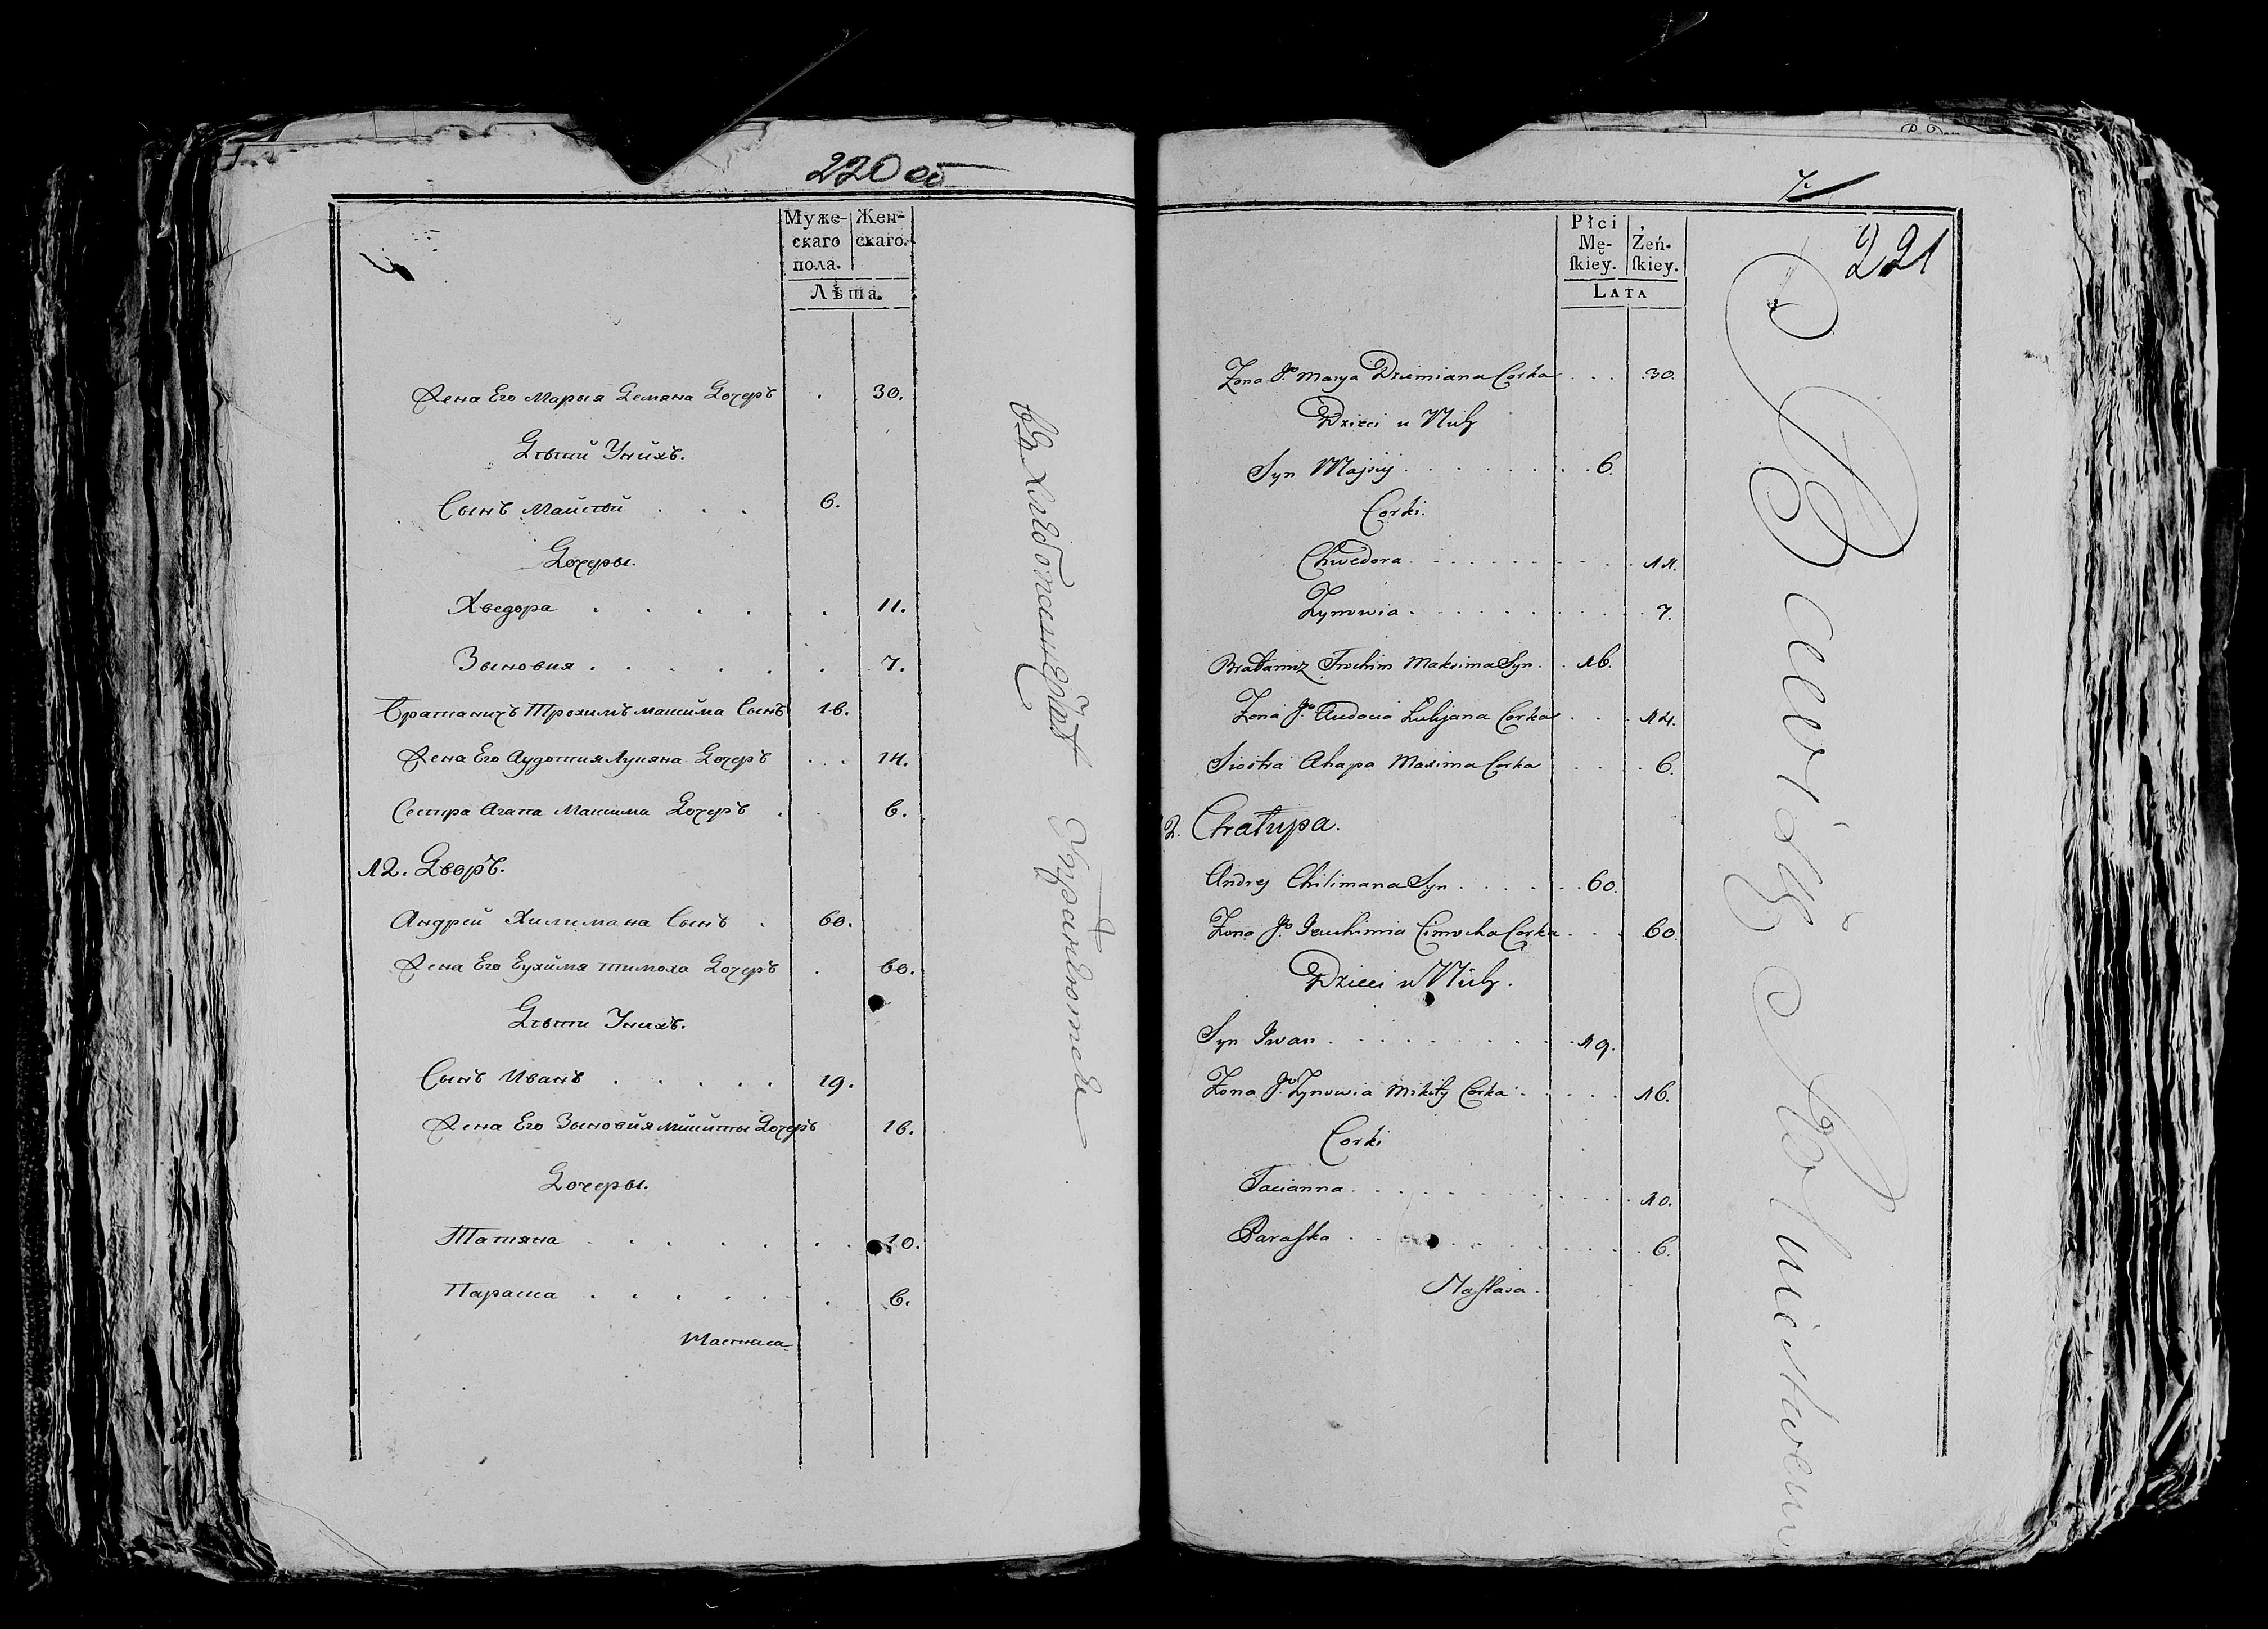 220 об
Муже-
скаго
пола.
Жен-
скаго.
Лѣта.
Жена Его Марья Демяна Дочеръ . 30.
Дѣти Унихъ.
Сынъ Майсѣй . . . 6.
Дочеры.
Хведора . . . . . . 11.
Зыновия . . . . . . 7.
Братаничъ Трохимъ Максима Сынъ 16.
Жена Его Аудотия Лукяна Дочеръ . . . 14.
Сестра Агапа Максима Дочеръ . . 6.
12. Дворъ.
Андрей Хилимана Сынъ . 60.
Жена Его Еухимя Тимоха Дочеръ . 60.
Дѣти Унихъ.
Сынъ Иванъ . . . . . 19.
Жена Его Зыновия Микиты Дочеръ 16.
Дочеры.
Татяна . . . . . . . 10.
Параска . . . . . . 6.
Настаса
7.
221
Płci
Mę-
ſkiey.
Żeń-
ſkiey.
LATA
Zona Jgo Marya Dziemiana Corka . . . 30.
Dzieci u Nich
Syn Majsiy . . . . . . . . 6.
Corki.
Chwedora . . . . . . . . . . 11.
Zynowia . . . . . . . . . . 7.
Bratanicz Trochim Maksima Syn . . 16.
Zona Jgo Audocia Łukjana Corka . . . 14.
Siostra Ahapa Maxima Corka . . . 6.
2. Chałupa.
Andrej Chilimana Syn . . . . . . 60.
Zona Jgo Jeuchimia Cimocha Corka . . . 60.
Dzieci u Nich.
Syn Jwan . . . . . . . . . . 19.
Zona Jgo Zynowia Mikity Corka . . . . . 16.
Corki
Tacianna . . . . . . . . . . 10.
Paraſka . . . . . . . . . . 6.
Naſtasa.